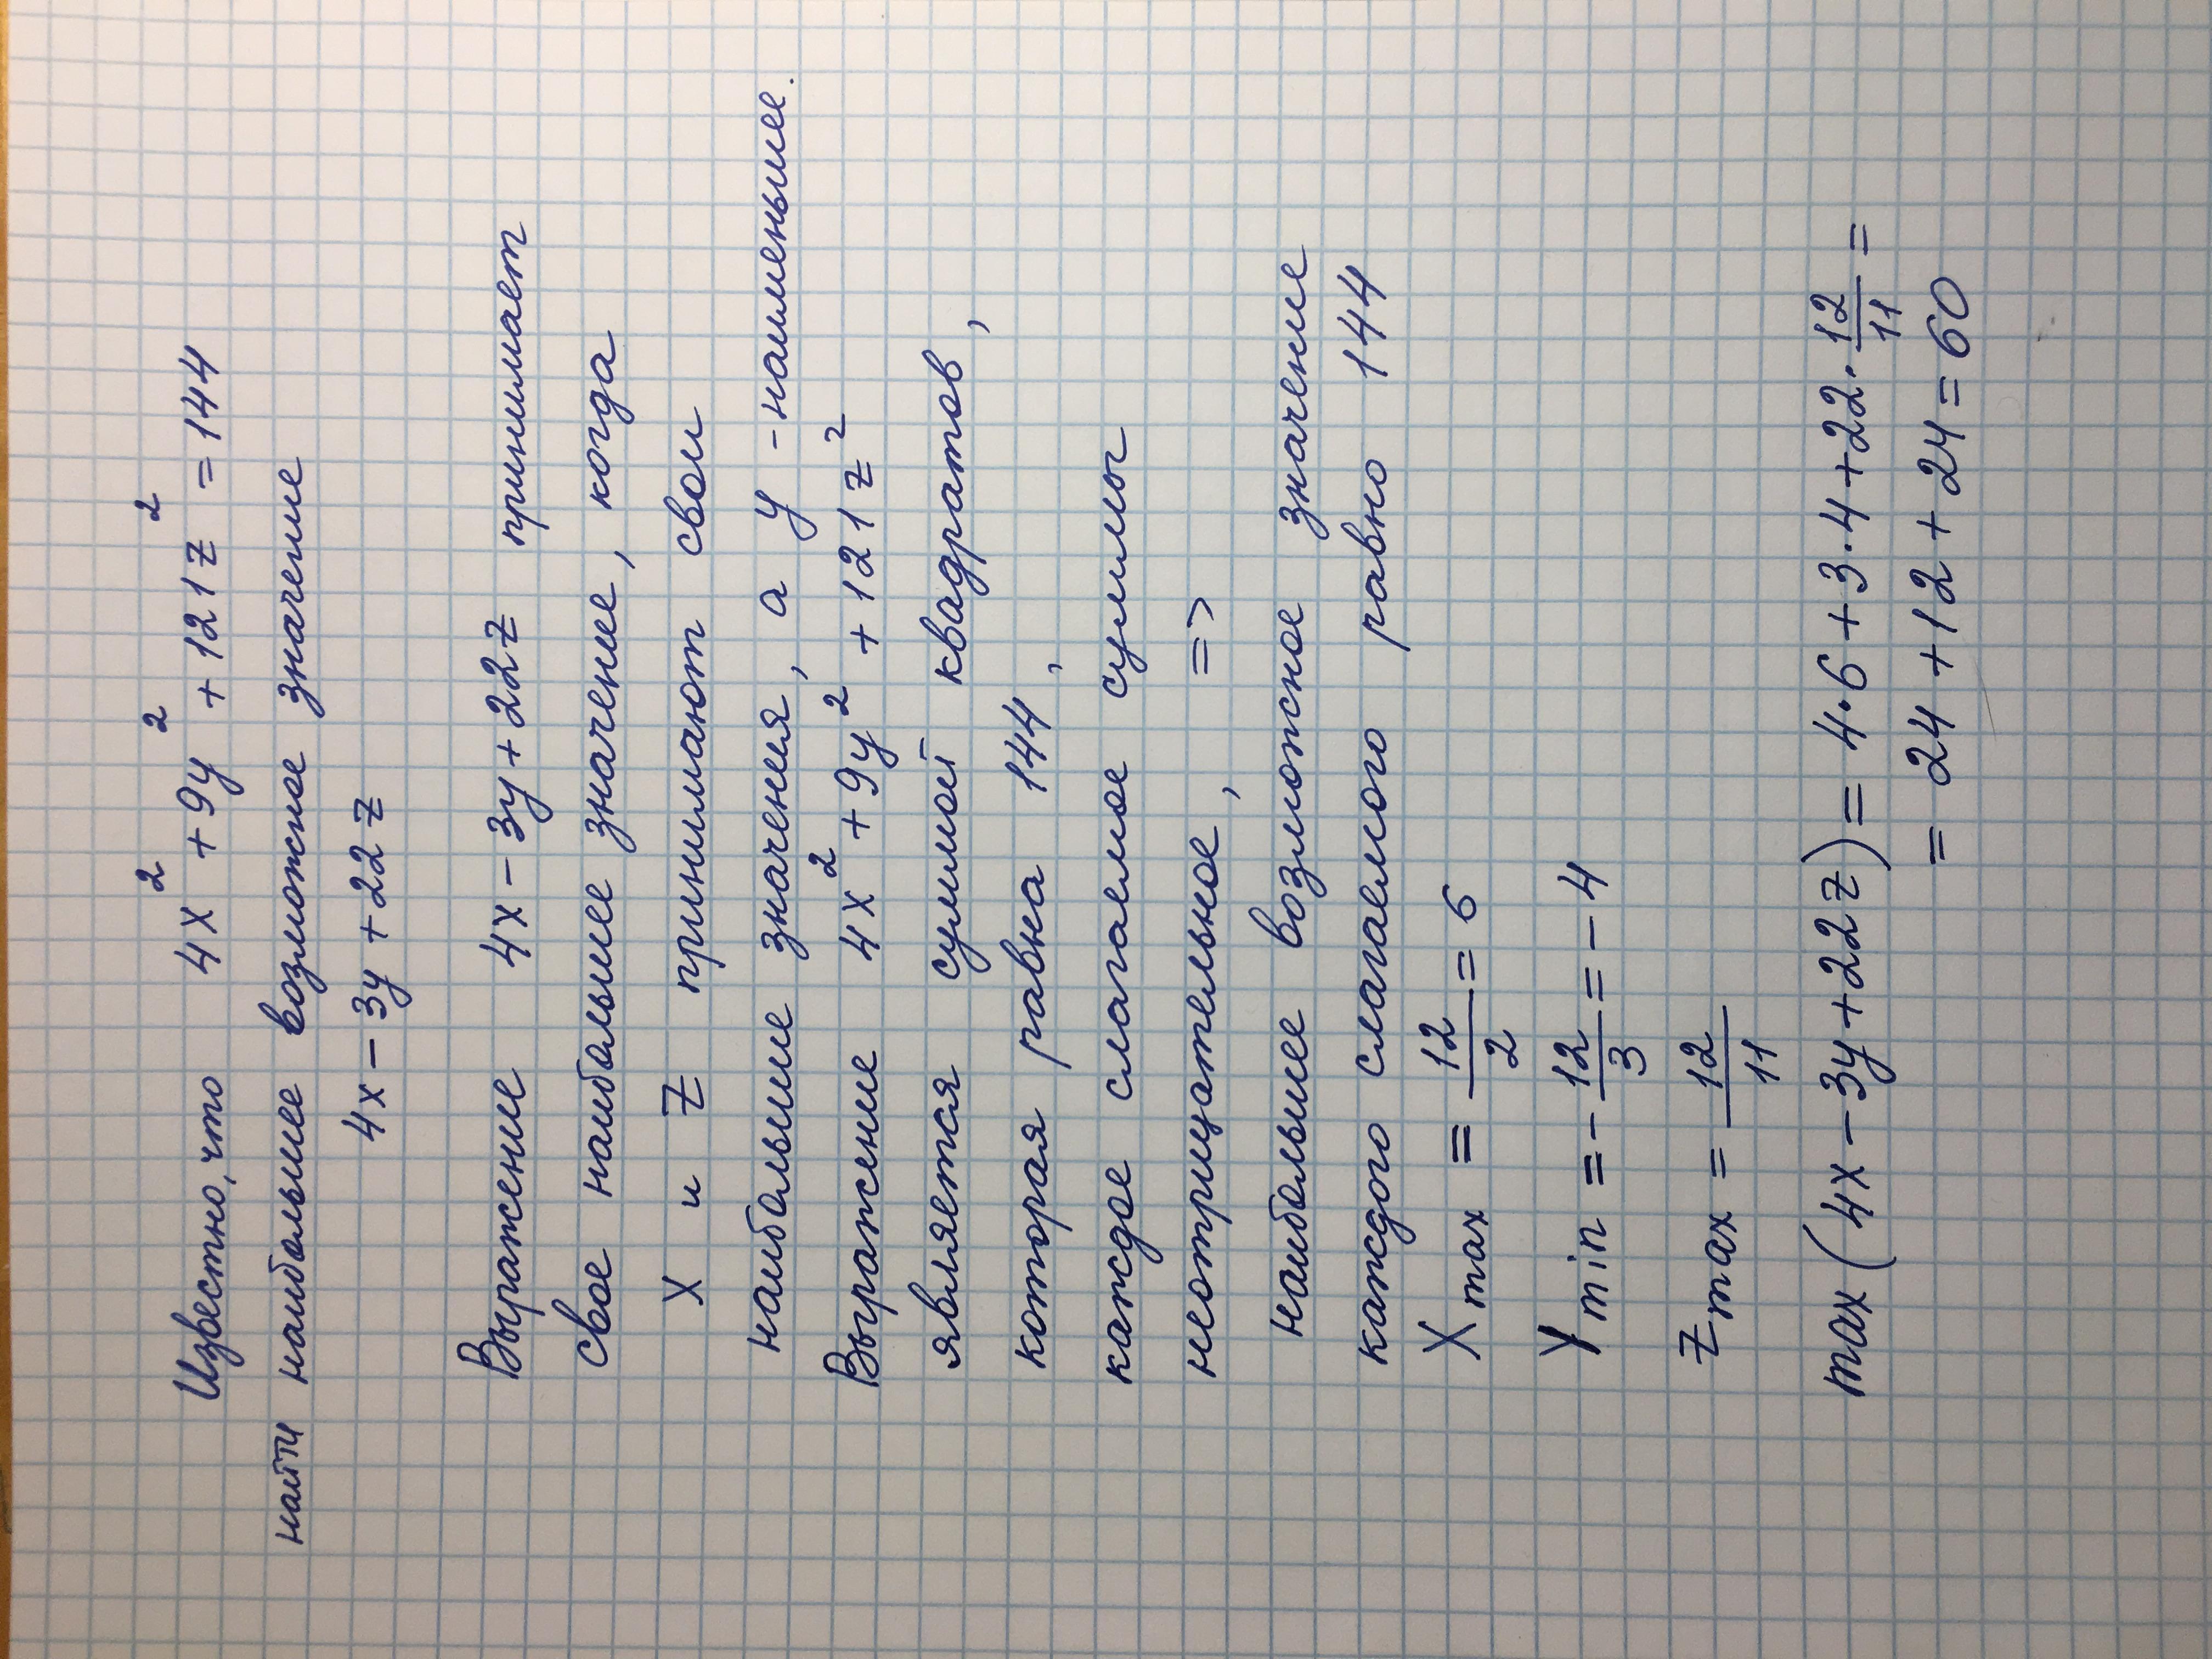 Известно, что 4x² + 9y² + 121z² = 144
найти наибольшее возможное значение
4x − 3y + 22z
Выражение 4x − 3y + 22z принимает
свое наибольшее значение, когда
x и z принимают свои
наибольшие значения, а y - наименьшее.
Выражение 4x² + 9y² + 121z²
является суммой квадратов,
которая равна 144,
каждое слагаемое суммы
неотрицательное, =>
наибольшее возможное значение
каждого слагаемого равно 144
X max = 12/2 = 6
Y min = - 12/3 = - 4
Z max = 12/11
max (4x − 3y + 22z) = 4·6 + 3·4 + 22·12/11 =
= 24 + 12 + 24 = 60